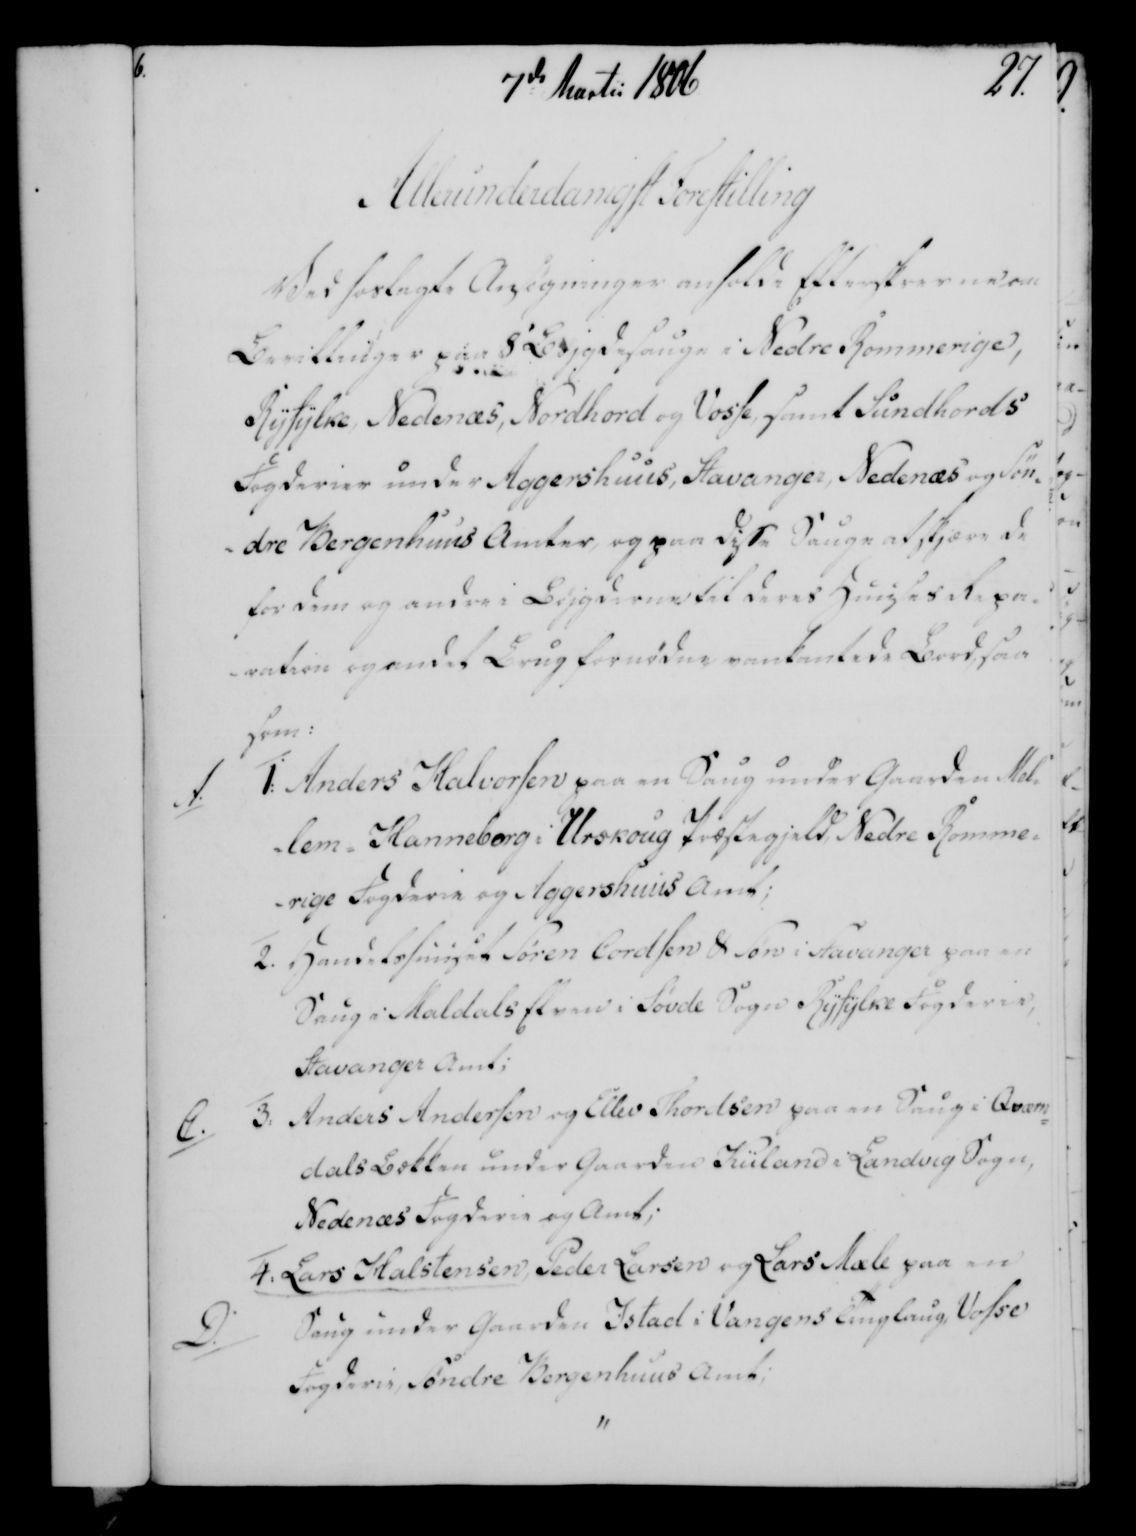 6.
7de Martii 1806
27.
Allerunderdanigst Forestilling
Ved hoslagte Ansøgninger anholde Efterskrevne om
Bevillinger paa 8 Bøjgdesauge i Nedre Rommerige,
Ryfylke, Nedenæs, Nordhord og Vosse, samt Sundhords
Fogderier under Aggershuus, Stavanger, Nedenæs og Søn-
-dre Bergenhuus Amter, og paa disse Sauge at skjære de
for dem og andre i Bøjgderne til deres Huuses Repa-
-ration og andet Brug fornødne vankantede Bord, saa
som:
A.
1. Anders Halvorsen paa en Saug under Gaarden Mel-
-lem-Hanneborg i Urskoug Præstegjeld, Nedre Romme-
-rige Fogderie og Aggershuus Amt;
2. Handelshuuset Søren Cordsen & Søn i Stavanger paa en
Saug i Maldals Elven i Søvde Sogn Ryfylke Fogderie,
Stavanger Amt;
C.
3. Anders Andersen og Ellev Thordsen paa en Saug i Qværn-
dals Bækken under Gaarden Kuland i Landvig Sogn,
Nedenæs Fogderie og Amt;
4. Lars Halstensen, Peder Larsen og Lars Mæle paa en
D.
Saug under Gaarden Istad i Vangens Tinglaug, Vosse
Fogderie, Søndre Bergenhuus Amt;
"